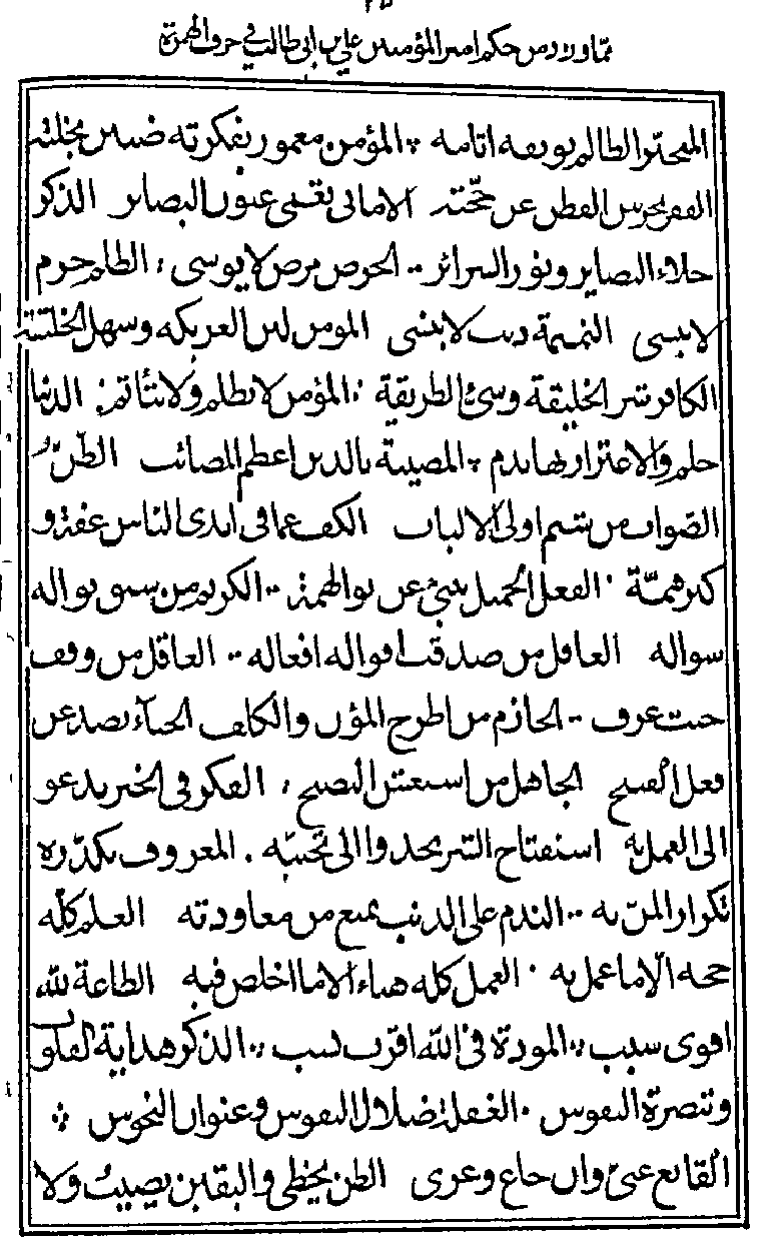 مما ورد من حكم امير المؤمنين علي بن ابي طالب في حرف الهمزة
المؤمن مغمور بفكرته ضنين بخلته
الفقر يخرس الفطن عن حجته الاماني تعمى عيون البصائر الذكر
جلاء البصاير ونور السرائر الحرص مرض لا يوسى الظلم جرم
لا ينسى النميمة ذنب لا ينسى المومن لين العريكه وسهل الخليقة
الكافر شر الخليقة وسئ الطريقة المؤمن لا يظلم ولا يتأثم الدنيا
حلم والاغترار بها ندم المصيبة بالدين اعظم المصائب الظن
الصواب من شيم اولى الالباب الكف عما فى ايدى الناس عفة و
كبر همة الفعل الجميل ينبئ عن الهمة الكريم من سبق نواله
سواله العاقل من صدقت اقواله افعاله العاقل من وقف
حيث عرف الحازم من اطرح المؤن والكلف الحيآء يصد عن
فعل القبيح الجاهل من استغش النصيح الفكر فى الخير يدعو
الى العمل به استفتاح الشر يحدو الى تجنبه المعروف يكدره
تكرار المن به الندم على الذنب يمنع من معاودته العلم كله
حجه الا ما عمل به العمل كله هباء الا ما اخلص فيه الطاعة لله
اقوى سبب المودة فى الله اقرب نسب الذكر هداية العقول
وتبصرة النفوس الغفلة ضلال النفوس وعنوان النحوس
القانع غنى وان جاع وعرى الظن يخطى واليقين يصيب ولا